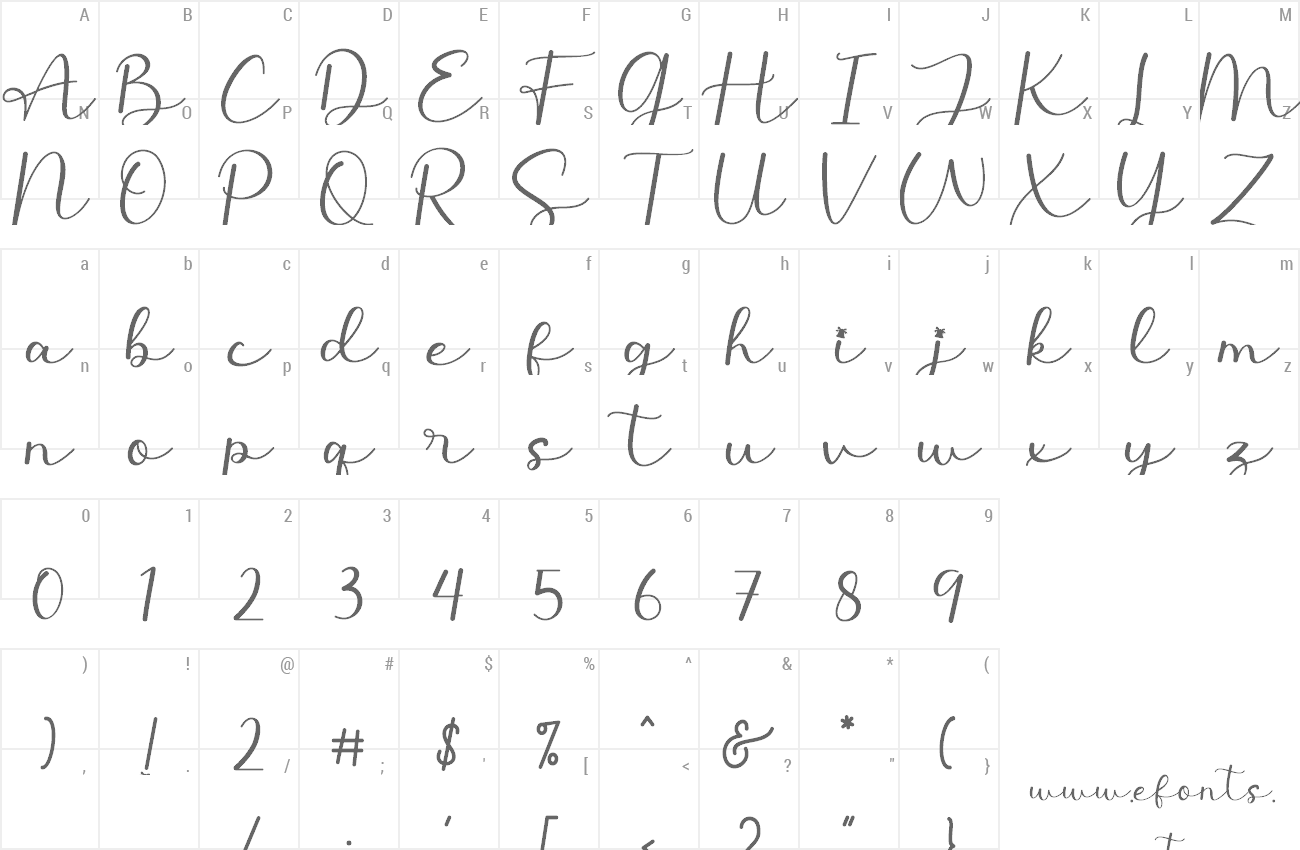 A B C D E F G H I J K L M
A B C D E F G H I J K L M
N O P Q R S T U V W X Y Z
N O P Q R S T U V W X Y Z
a b c d e f g h i j k l m
a b c d e f g h i j k l m
n o p q r s t u v w x y z
n o p q r s t u v w x y z
0 1 2 3 4 5 6 7 8 9
0 1 2 3 4 5 6 7 8 9
) ! @ # $ % ^ & * (
) ! 2 # $ % ^ & * (
, . / ; ' [ < ? " }
/ ; ' [ < ? " }
www.efonts.
t